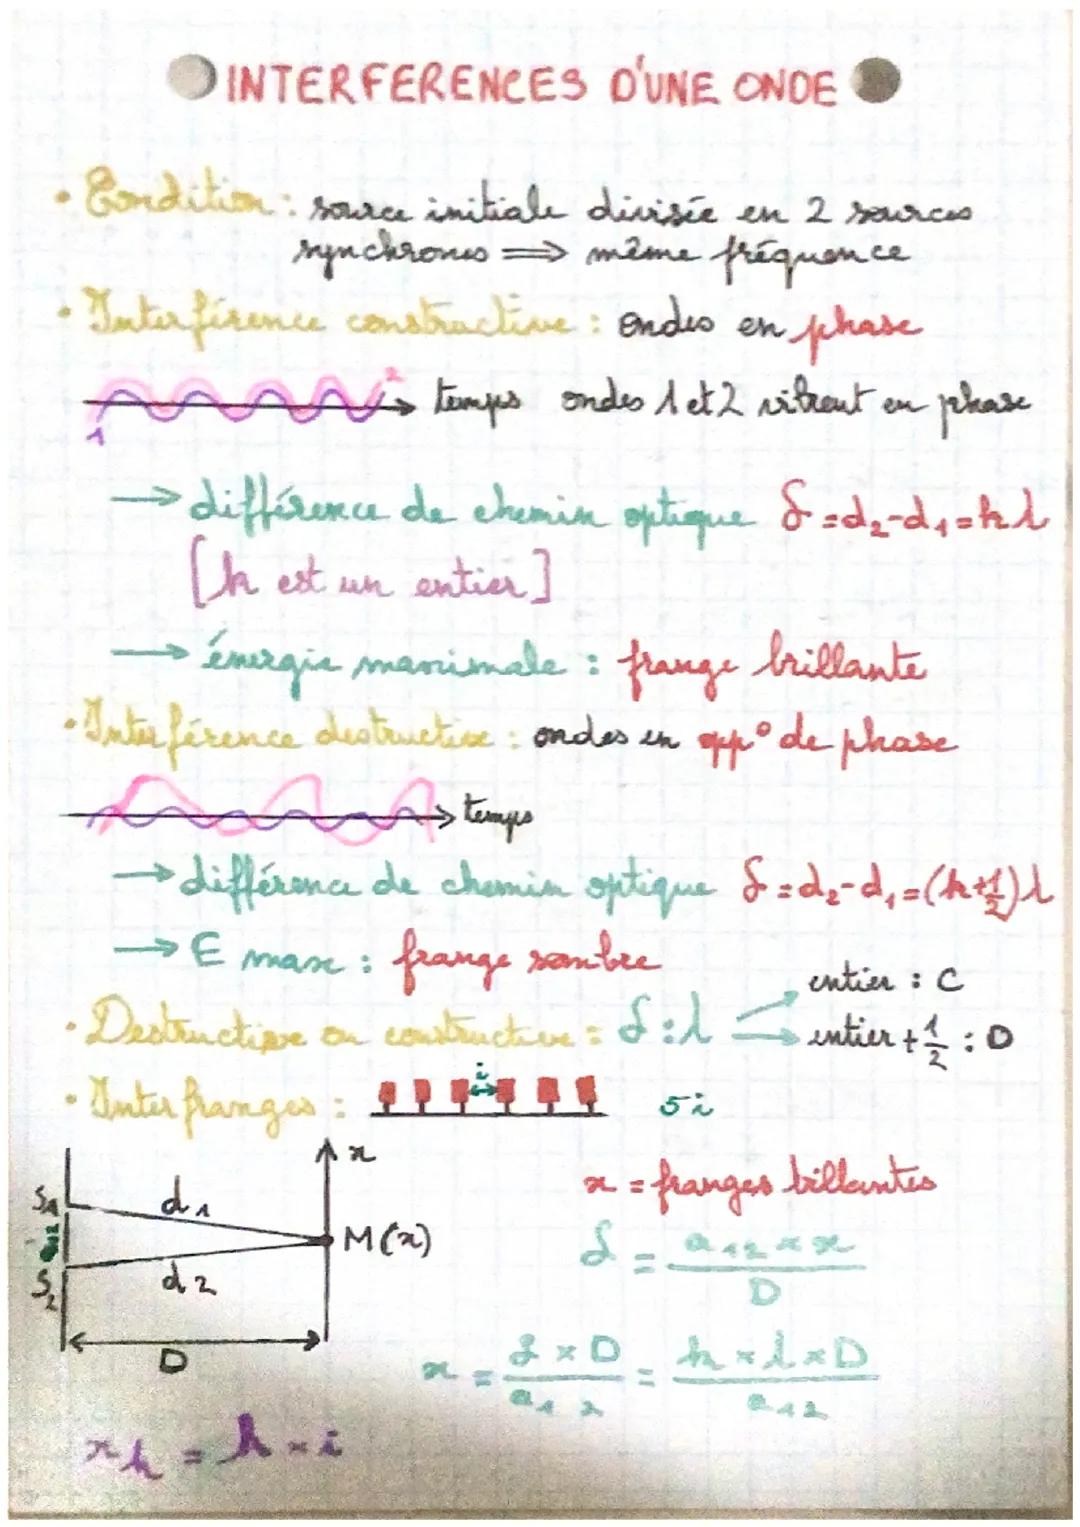 INTERFERENCES D'UNE ONDE
• Condition : source initiale divisée en 2 sources
synchrones ⟹ même fréquence
• Interférence constructive : ondes en phase
1 2 → temps ondes 1 et 2 vibrent en phase
→ différence de chemin optique δ = d₂-d₁ = k λ
[k est un entier]
→ énergie maximale : frange brillante
• Interférence destructive : ondes en opp° de phase
temps
→ différence de chemin optique δ = d₂-d₁ = (k+1/2) λ
→ E max : frange sombre
entier : C
• Destructive ou constructive : δ : λ
entier + 1/2 : D
• Interfranges : i 5i
x
x = franges billantes
S₁ d₁
a₁₂ M(x)
δ = a₁₂ × x / D
S₂ d₂
D
x = δ × D / a₁₂ = k × λ × D / a₁₂
xk = k × i